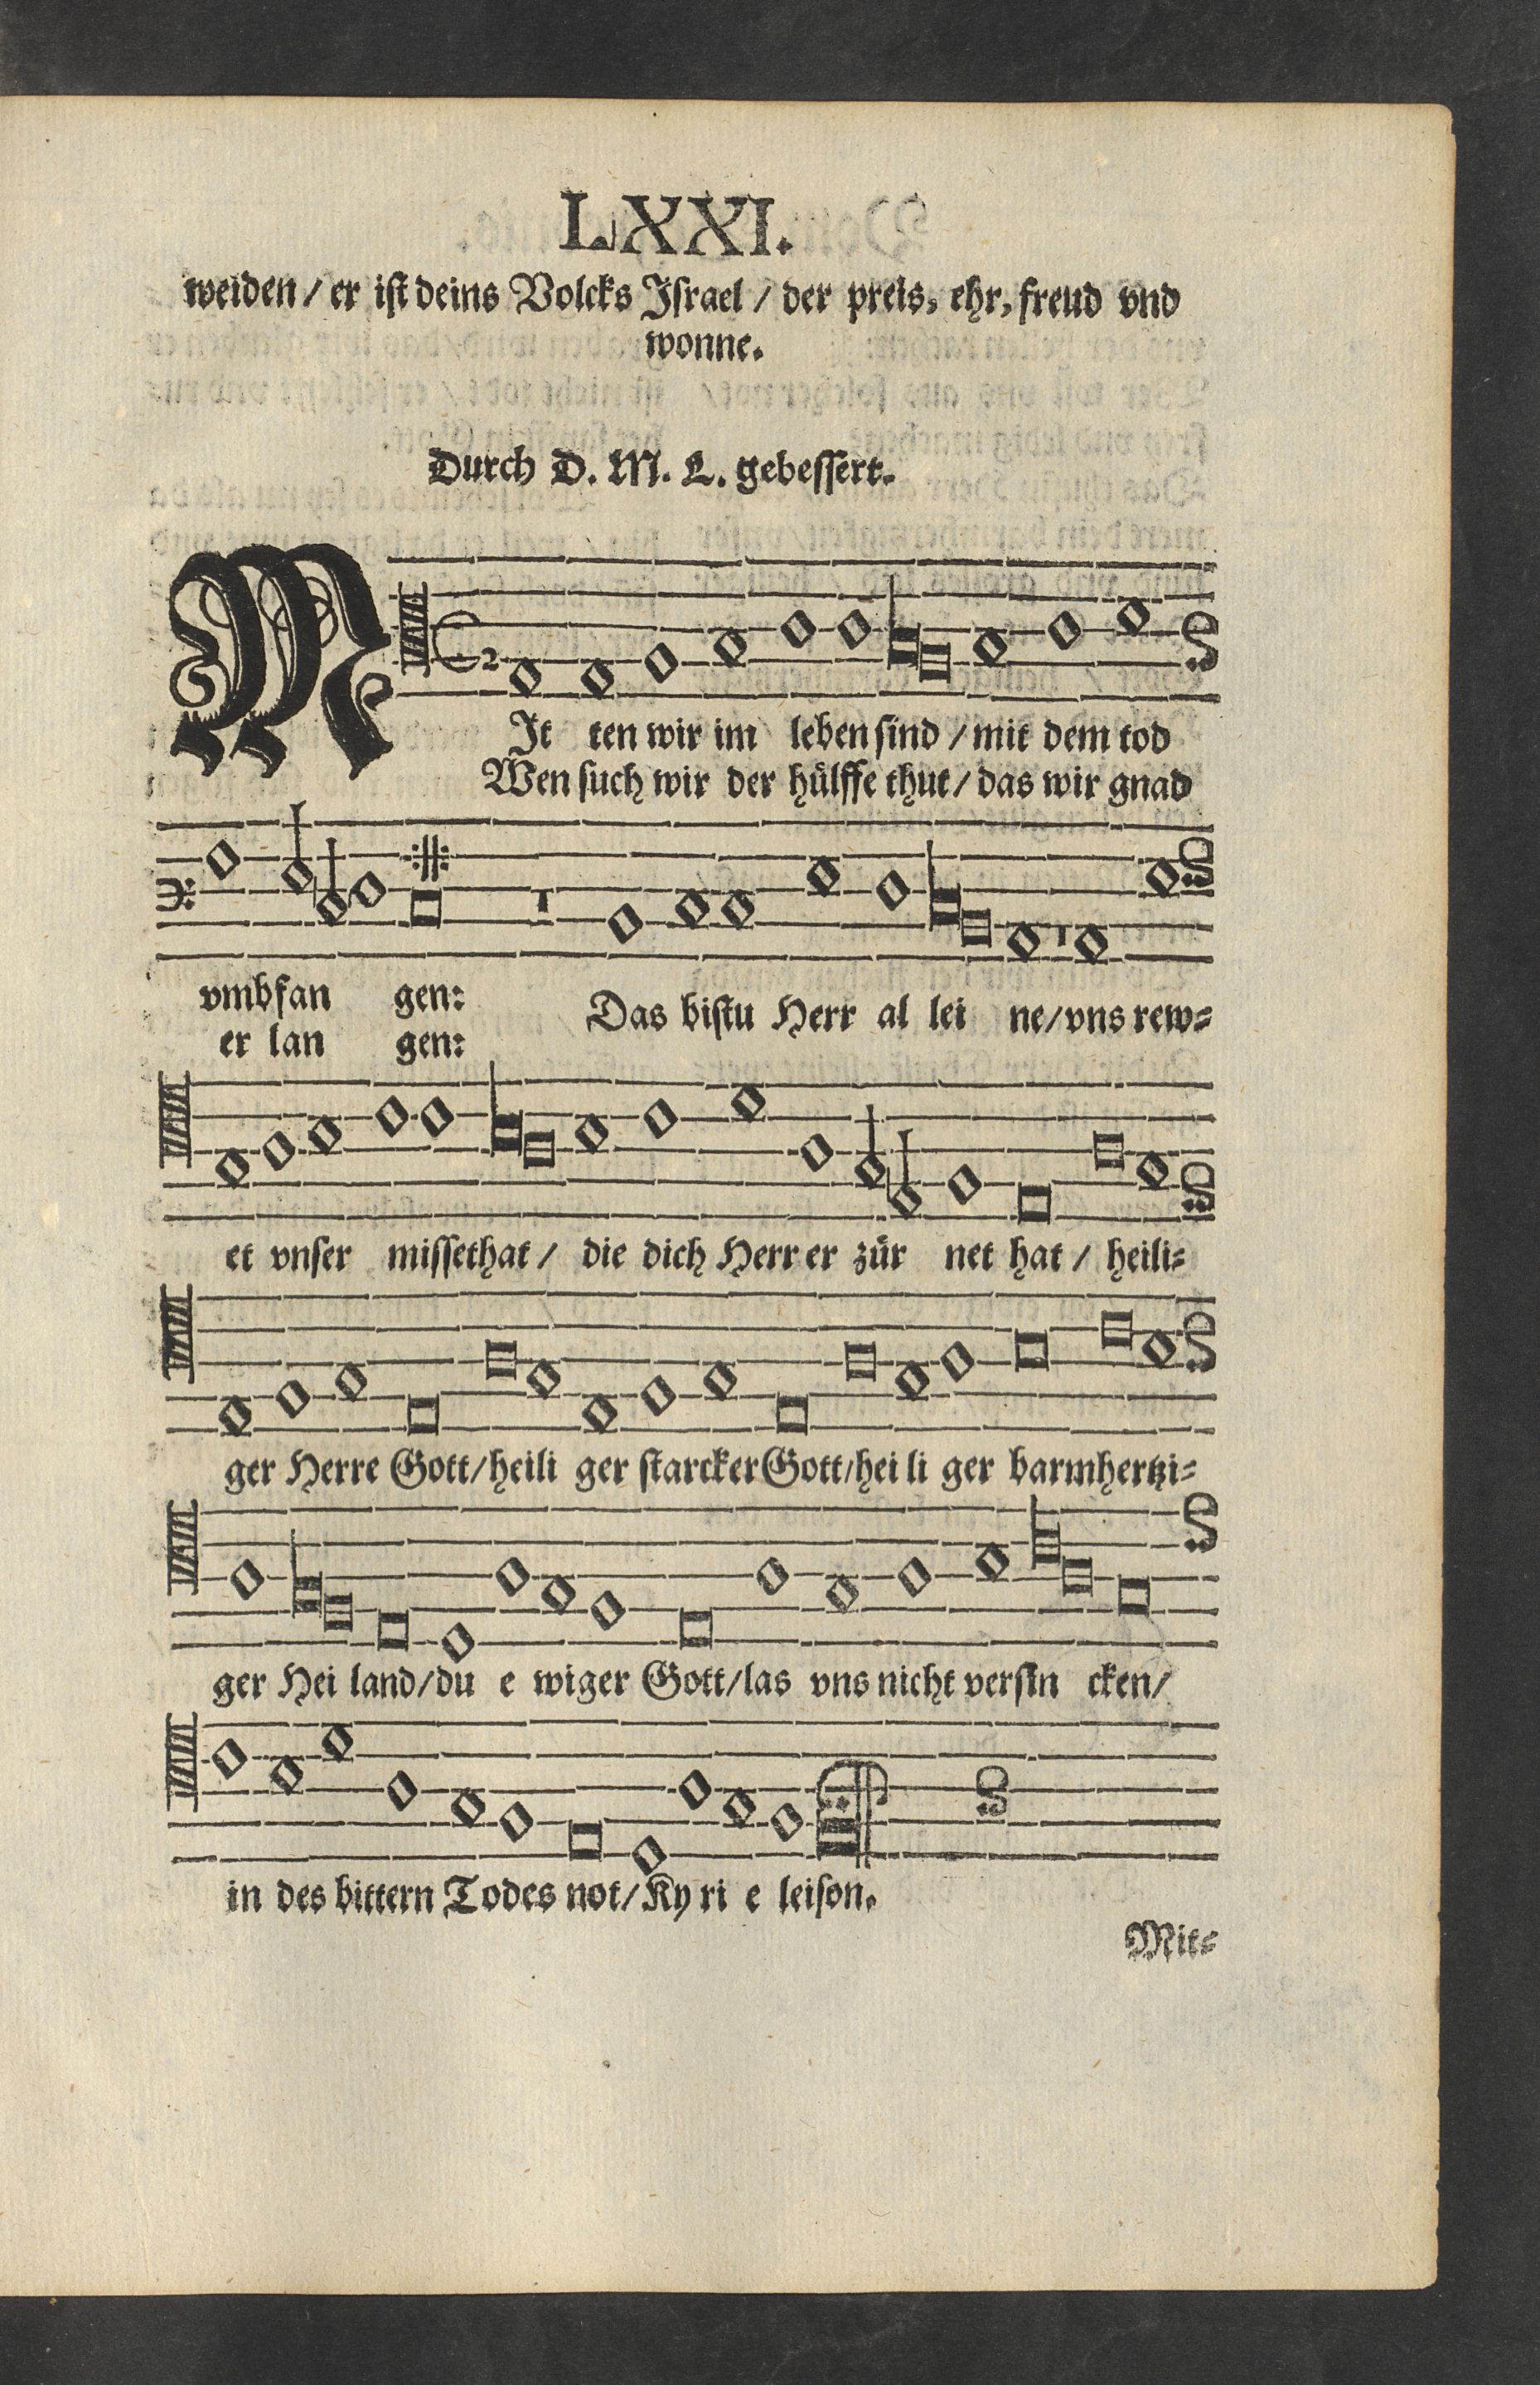 LXXI.
weiden / er ist deins Volcks Jsrael / der preis, ehr, freud vnd
wonne.
Durch D. M. L. gebessert.
MJt ten wir im leben sind / mit dem tod
Wen such wir der hülffe thut / das wir gnad
vmbfan gen: Das bistu Herr al lei ne/vns rew⸗
er lan gen:
et vnser missethat / die dich Herr er zür net hat / heili⸗
ger Herre Gott/heili ger starcker Gott/hei li ger barmhertzi⸗
ger Hei land/du e wiger Gott/las vns nicht versin cken/
in des bittern Todes not/Ky ri e leison.
Mit⸗